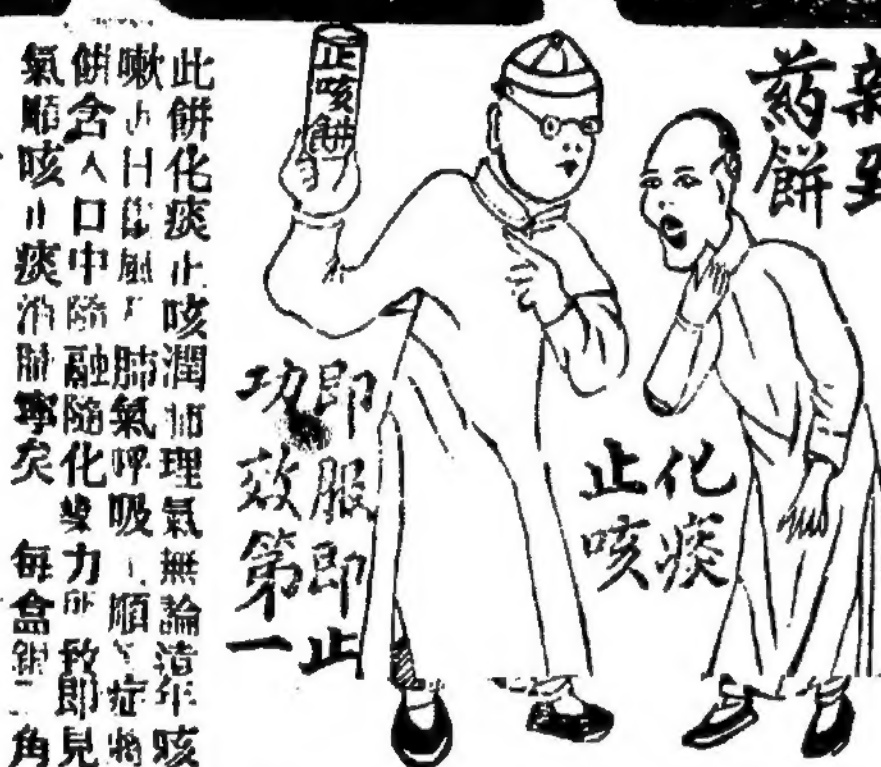 新到
葯餅
化痰
止咳
止咳餅
即服即止
功效第一
此餅化痰止咳潤肺理氣無論年咳
嗽日傷風肺氣呼吸順症將
餅含入口中隨融隨化藥力所致即見
氣順咳止痰消肺寧矣 每盒銀角